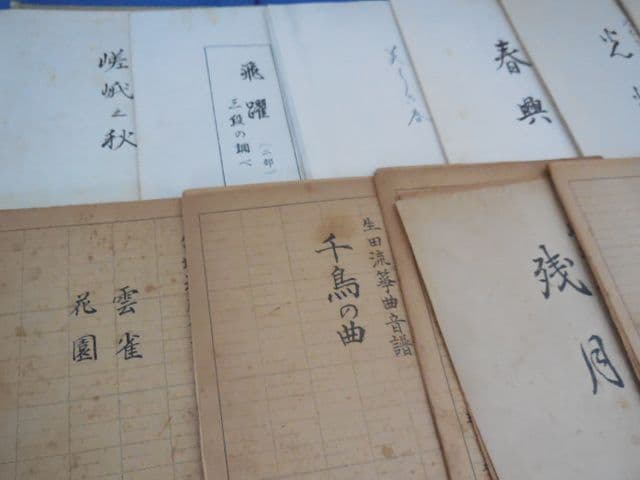 嵯峨之秋
飛躍
(二部)
三段の調べ
春興
雲雀
花園
生田流箏曲音譜
千鳥の曲
残月